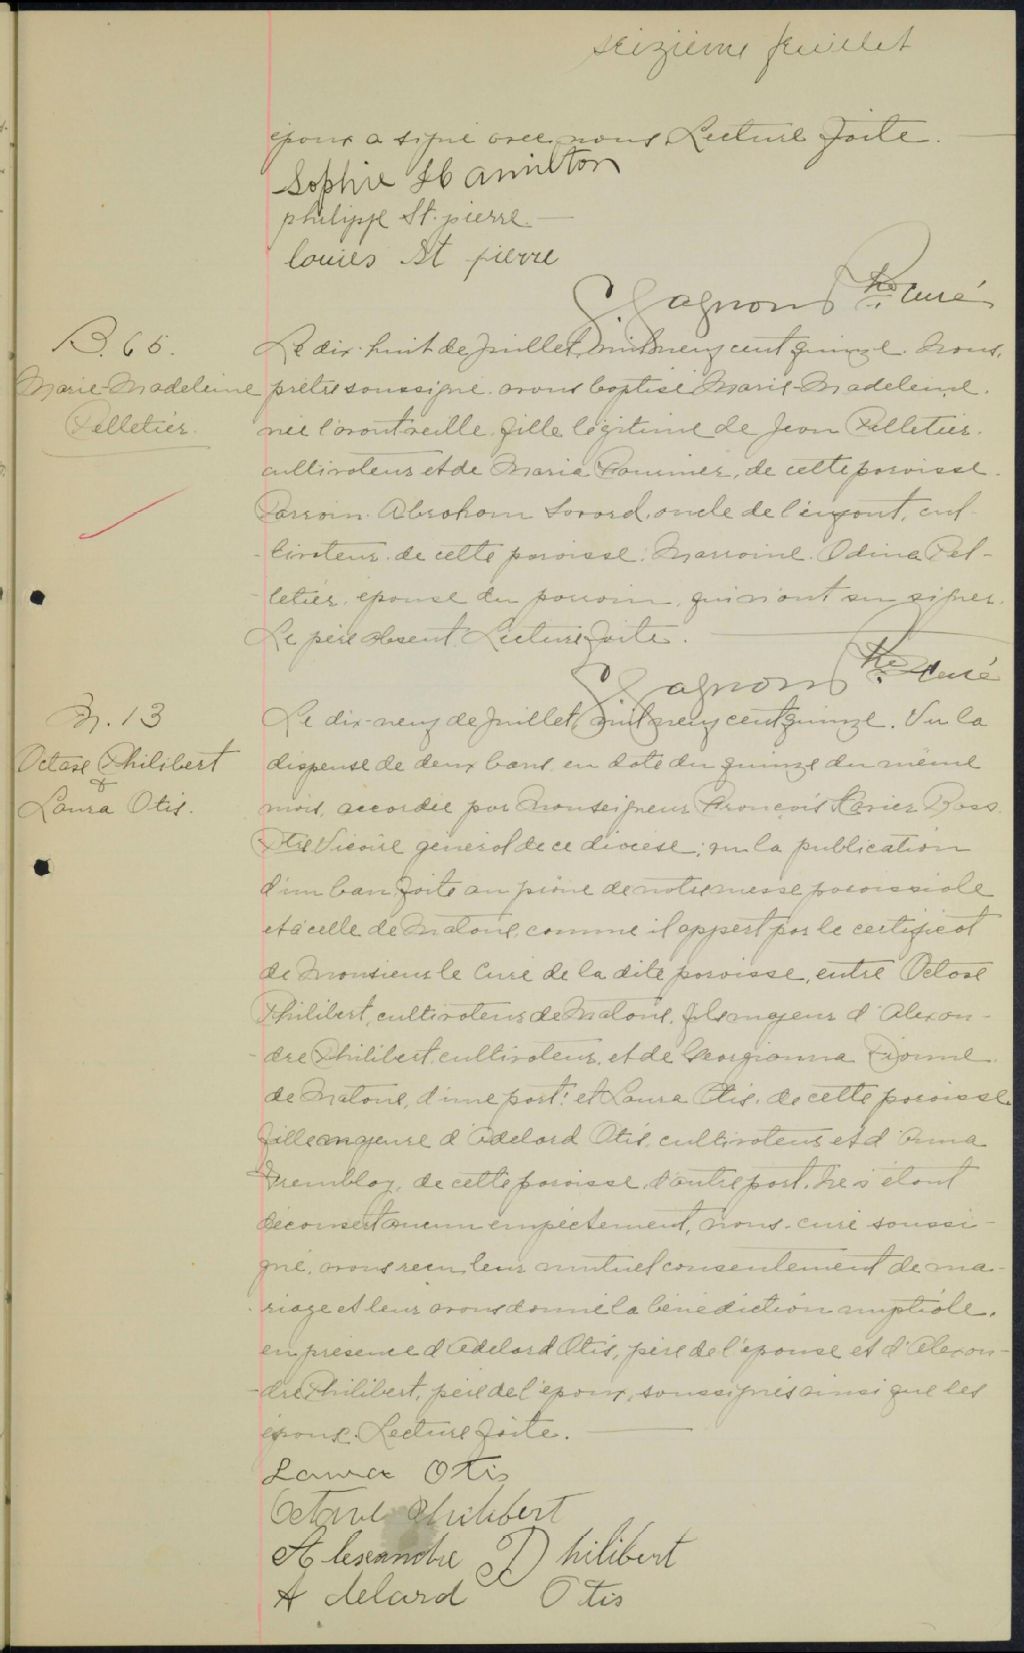 seizième feuillet
époux a signé avec nous Lecture faite.
Sophie Hamilton
philippe St. pierre
louies St pierre
G. Gagnon Ptre curé
B. 65.
Marie-Madeleine
Pelletier.
Le dix-huit de Juillet, mil neuf cent quinze. Nous,
prêtre soussigné avons baptisé Marie-Madeleine.
née l'avant veille, fille légitime de Jean Pelletier.
cultivateur et de Maria Fournier, de cette paroisse.
Parrain Abraham Savard, oncle de l'enfant, cul-
-tivateur de cette paroisse: Marraine. Odina Pel-
-letier, épouse du parrain, qui n'ont su signer.
Le père absent. Lecture faite.
G. Gagnon Ptre curé
M. 13
Octave Philibert
&
Laura Otis.
Le dix-neuf de Juillet, mil neuf cent quinze. Vu la
dispense de deux bans en date du quinze du même
mois, accordée par Monseigneur François Xavier Ross
Ptre Vicaire général de ce diocèse; vu la publication
d'un ban faite au prône de notre messe paroissiale
et à celle de Matane, comme il appert par le certificat
de Monsieur le Curé de la dite paroisse, entre Octave
Philibert, cultivateur de Matane, fils majeur d'Alexan-
-dre Philibert cultivateur, et de Georgianna Dionne
de Matane, d'une part: et Laura Otis, de cette paroisse
fille majeure d'Adelard Otis, cultivateur et d'Anna
Tremblay, de cette paroisse, d'autre part. Ne s'étant
découvert aucun empêchement, nous, curé soussi-
gné, avons reçu leur mutuel consentement de ma-
-riage et leur avons donné la bénédiction nuptiale,
en présence d'Adelard Otis, père de l'épouse et d'Alexan-
-dre Philibert, père de l'époux, soussignés ainsi que les
époux. Lecture faite.
Laura Otis
Octave Philibert
Alexandre Philibert
Adelard Otis